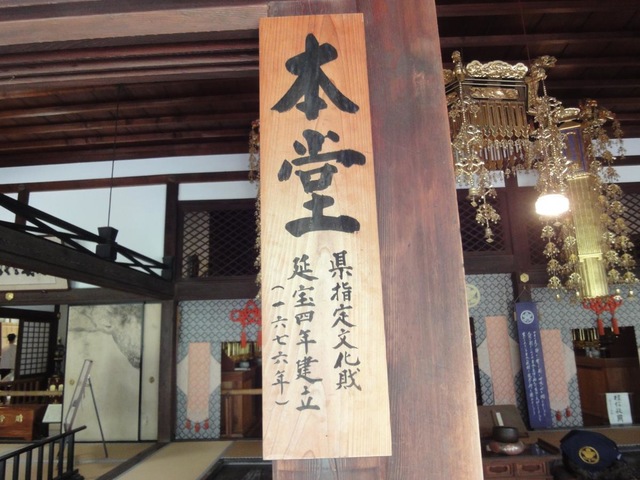 本堂
県指定文化財
延宝四年建立
(一六七六年)